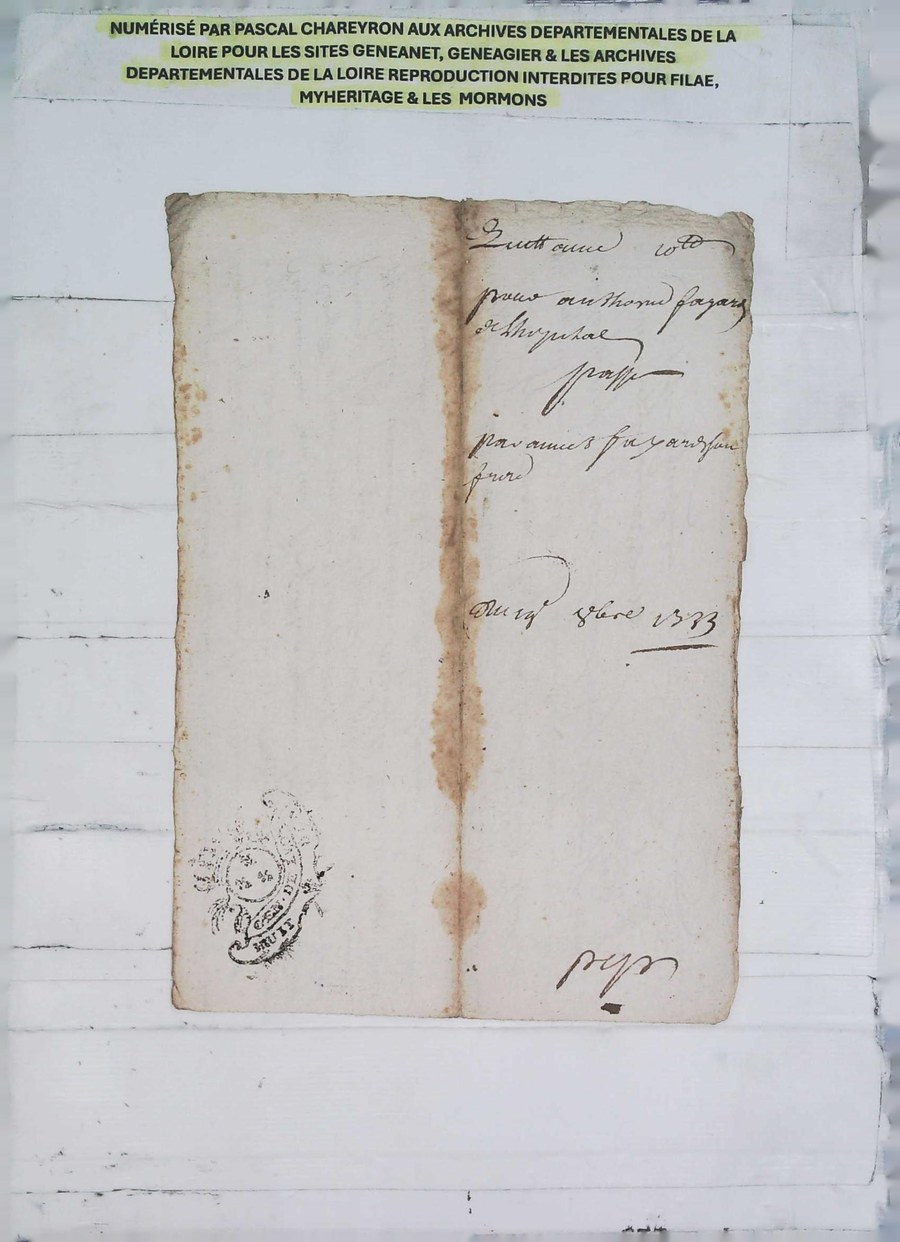 NUMÉRISÉ PAR PASCAL CHAREYRON AUX ARCHIVES DEPARTEMENTALES DE LA
LOIRE POUR LES SITES GENEANET, GENEAGIER & LES ARCHIVES
DEPARTEMENTALES DE LA LOIRE REPRODUCTION INTERDITES POUR FILAE,
MYHERITAGE & LES MORMONS
Quittance
pour anthoine fayard
de lhopital
passé
par fayard son
frere
Du 19 8bre 1733
GEN DE